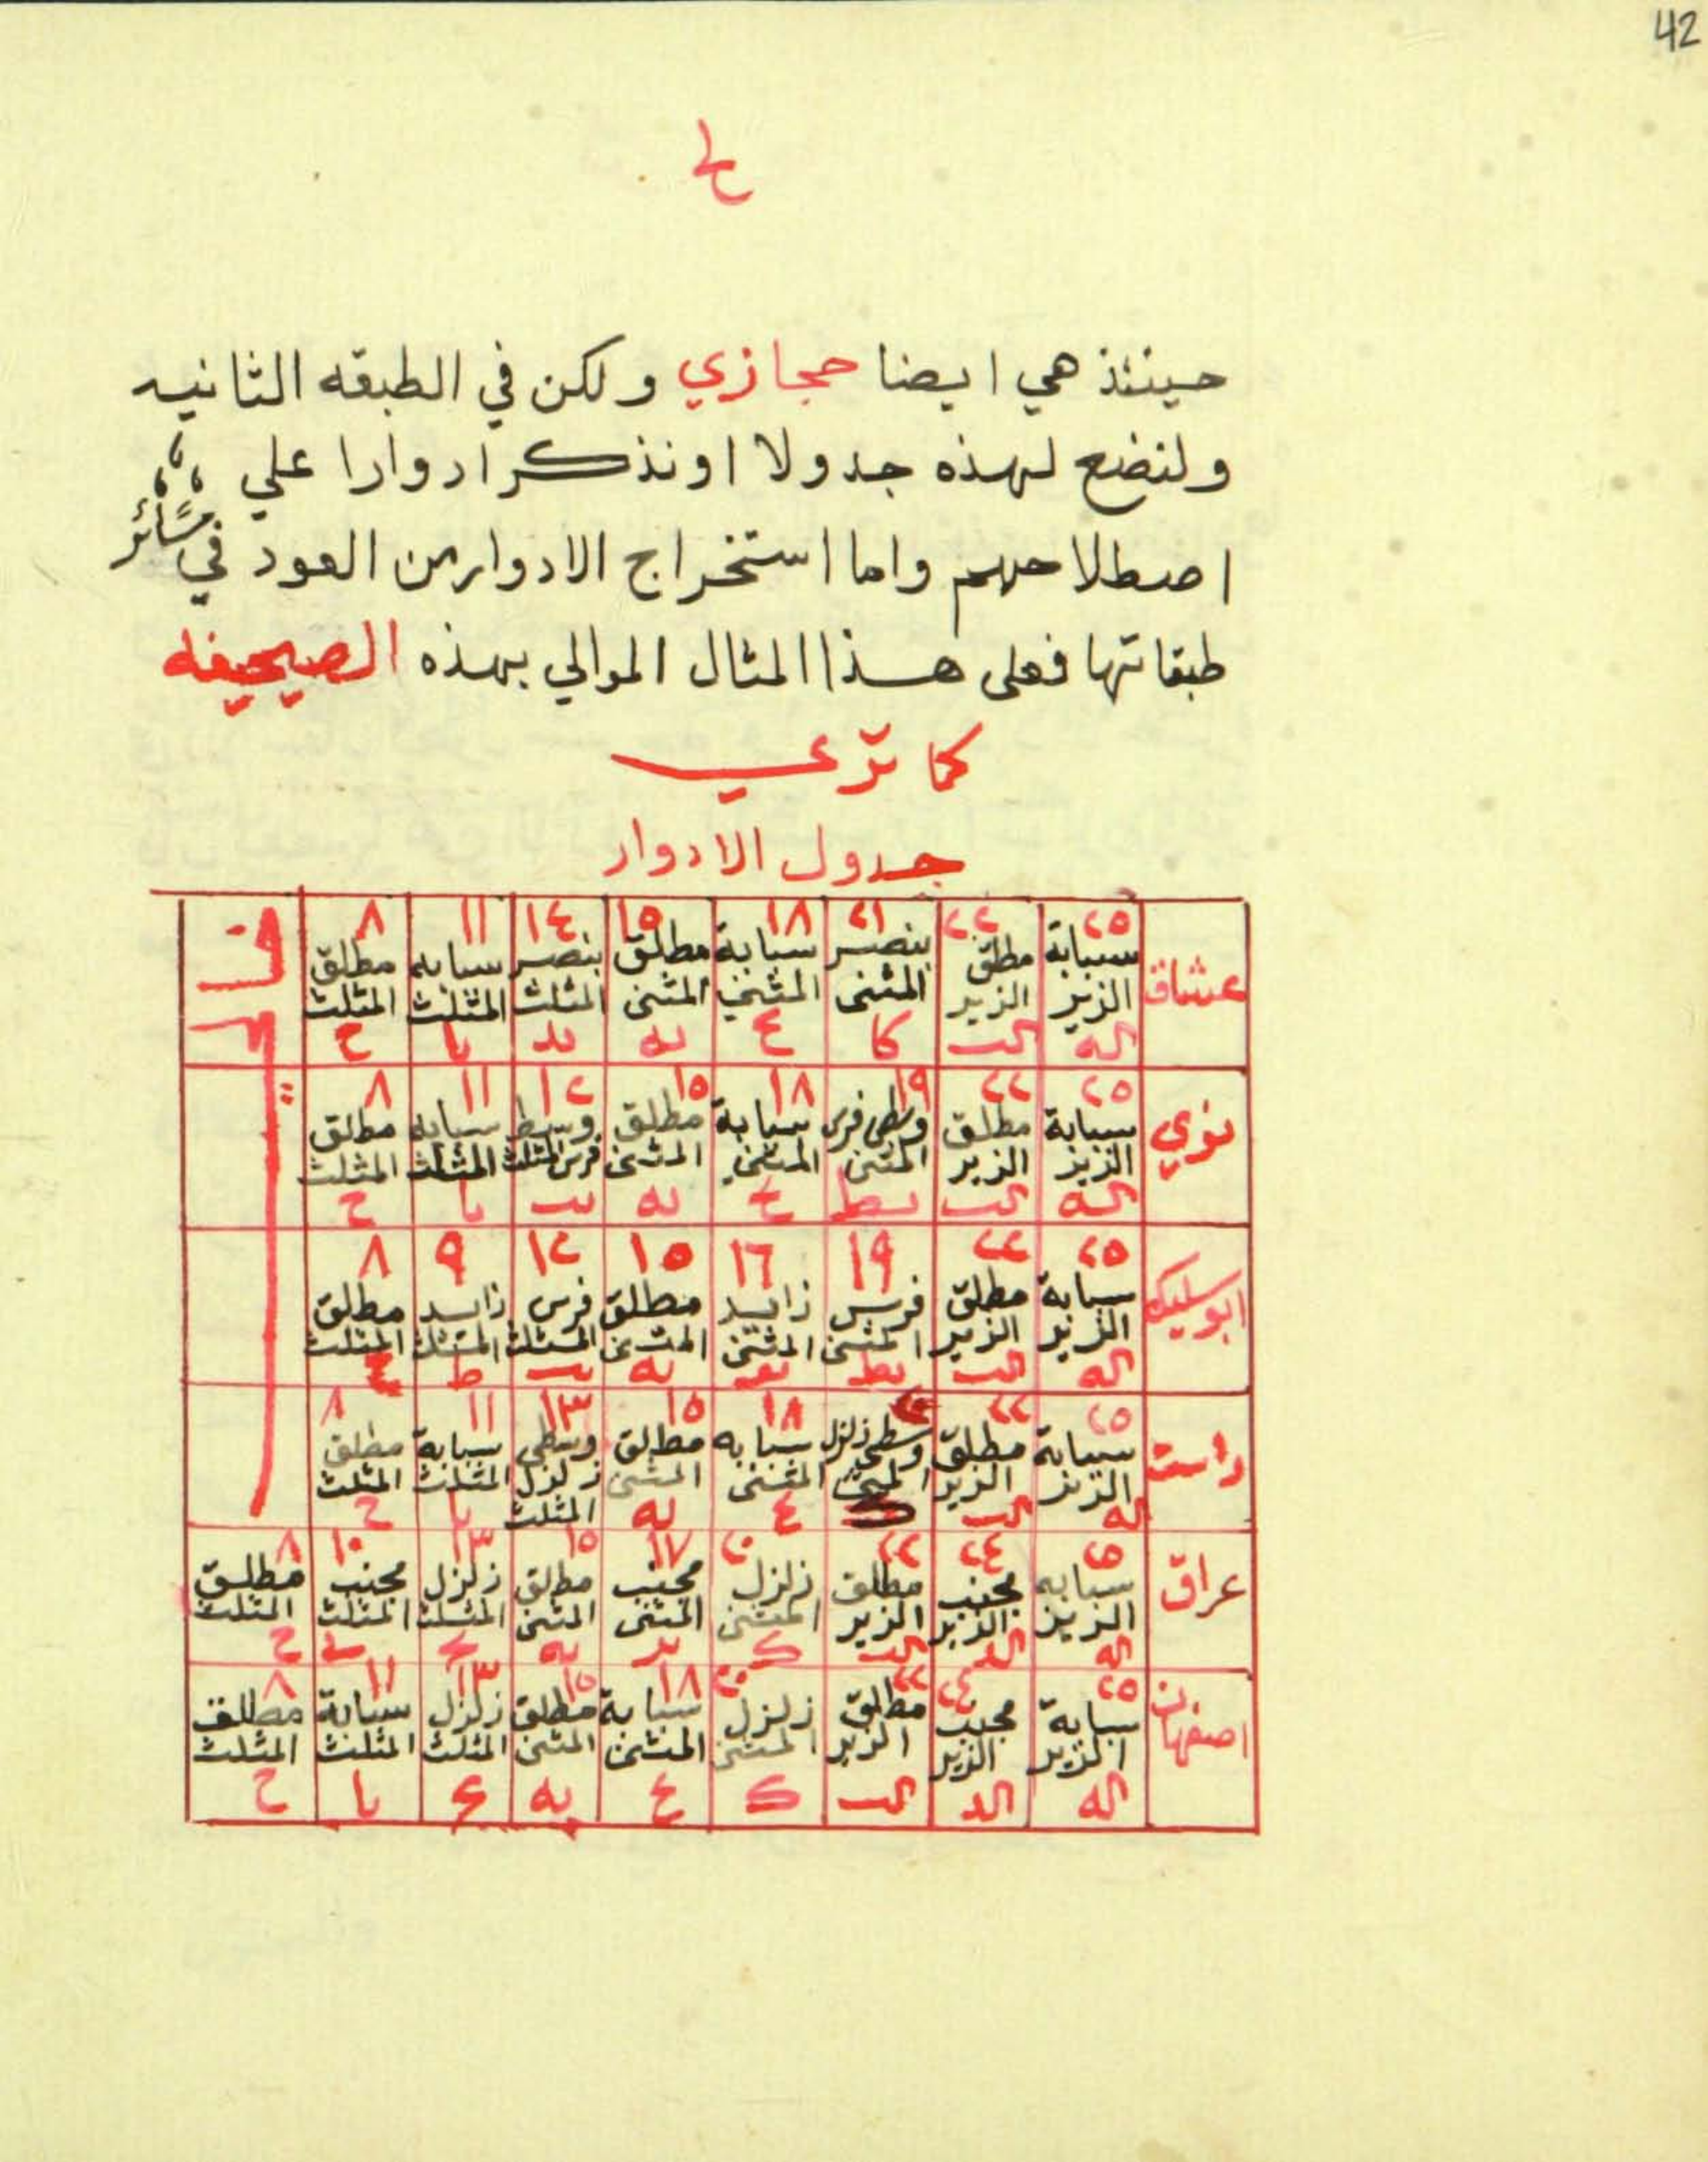 42
لح
حينئذ هي ايضا حجازي ولكن في الطبقه الثانيه
ولنضع لهذه جدولا او نذكر ادوارا علي
اصطلاحهم واما استخراج الادوار من العود في سائر
طبقاتها فعلى هذا المثال الموالي بهذه الصيحيفه
كما ترعي
جدول الادوار
عشاق
٢٥ سبابة الزير اله
٢٢ مطلق الزير الب
٢١ بنصر المثنى كا
١٨ سبابة المثني ع
١٥ مطلق المثنى يه
١٤ بنصر المثلث يد
١١ سبابه المثلث يا
٨ مطلق المثلث ح
نوي
٢٥ سبابة الزير اله
٢٢ مطلق الزير الب
١٩ وسطى فرس المثنى يط
١٨ سبابة المثنى ع
١٥ مطلق المثنى يه
١٢ وسطى فرس المثلث يب
١١ سبابه المثلث يا
٨ مطلق المثلث ح
ابوسليك
٢٥ سبابة الزير اله
٢٢ مطلق الزير الب
١٩ فرس المثنى يط
١٦ زايد المثنى يو
١٥ مطلق المثنى يه
١٢ فرس المثلث يب
٩ زايد المثلث ط
٨ مطلق المثلث ح
راست
٢٥ سبابة الزير اله
٢٢ مطلق الزير الب
٢٠ وسطى زلزل المثنى ك
١٨ سبابه المثنى ع
١٥ مطلق المثنى يه
١٣ وسطى زلزل المثلث
١١ سبابة المثلث يا
٨ مطلق المثلث ح
عراق
٢٥ سبابه الزير اله
٢٤ مجنب الزير الد
٢٢ مطلق الزير الب
٢٠ زلزل المثنى ك
١٧ مجنب المثنى
١٥ مطلق المثنى يه
١٣ زلزل المثلث
١٠ مجنب المثلث
٨ مطلق المثلث ح
اصفهان
٢٥ سبابة الزير اله
٢٤ مجنب الزير الد
٢٢ مطلق الزير الب
٢٠ زلزل المثنى ك
١٨ سبابة المثنى ع
١٥ مطلق المثنى يه
١٣ زلزل المثلث ع
١١ سبابة المثلث يا
٨ مطلق المثلث ح